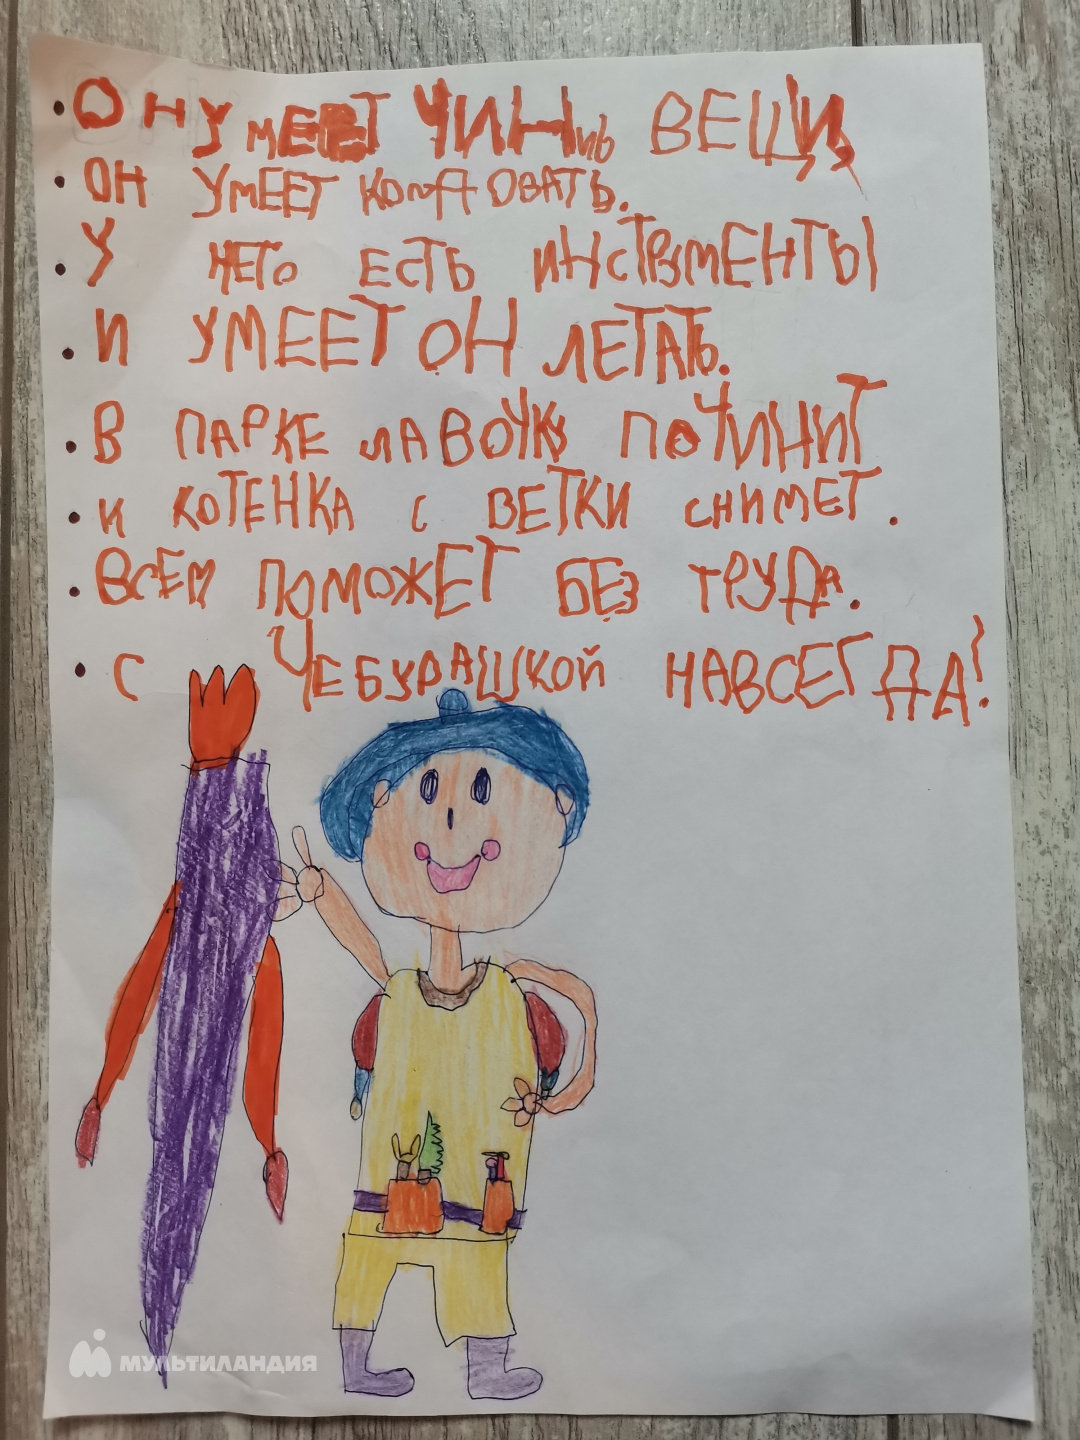 ОН УМЕЕТ ЧИНиь ВЕЩИ,
ОН УМЕЕТ КОЛДОВАТЬ.
У НЕГО ЕСТЬ ИНСТРУМЕНТЫ
И УМЕЕТ ОН ЛЕТАТЬ.
В ПАРКЕ ЛАВОЧКУ ПОЧИНИТ
И КОТЕНКА С ВЕТКИ СНИМЕТ.
ВСЕМ ПОМОЖЕТ БЕЗ ТРУДА.
С ЧЕБУРАШКОЙ НАВСЕГДА!
МУЛЬТИЛАНДИЯ